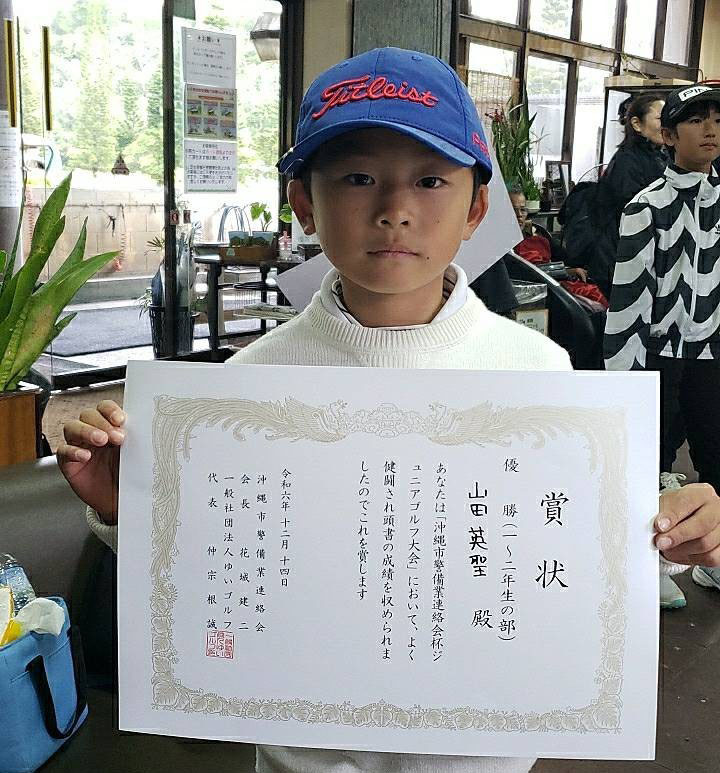 Titleist
PING
お願い
賞状
優　勝(一～二年生の部)
山田英聖　殿
あなたは「沖縄市警備業連絡会杯ジ
ュニアゴルフ大会」において、よく
健闘され頭書の成績を収められま
したのでこれを賞します
令和六年十二月十四日
沖縄市警備業連絡会
会長　花城建二
一般社団法人ゆいゴルフ
代表　仲宗根誠